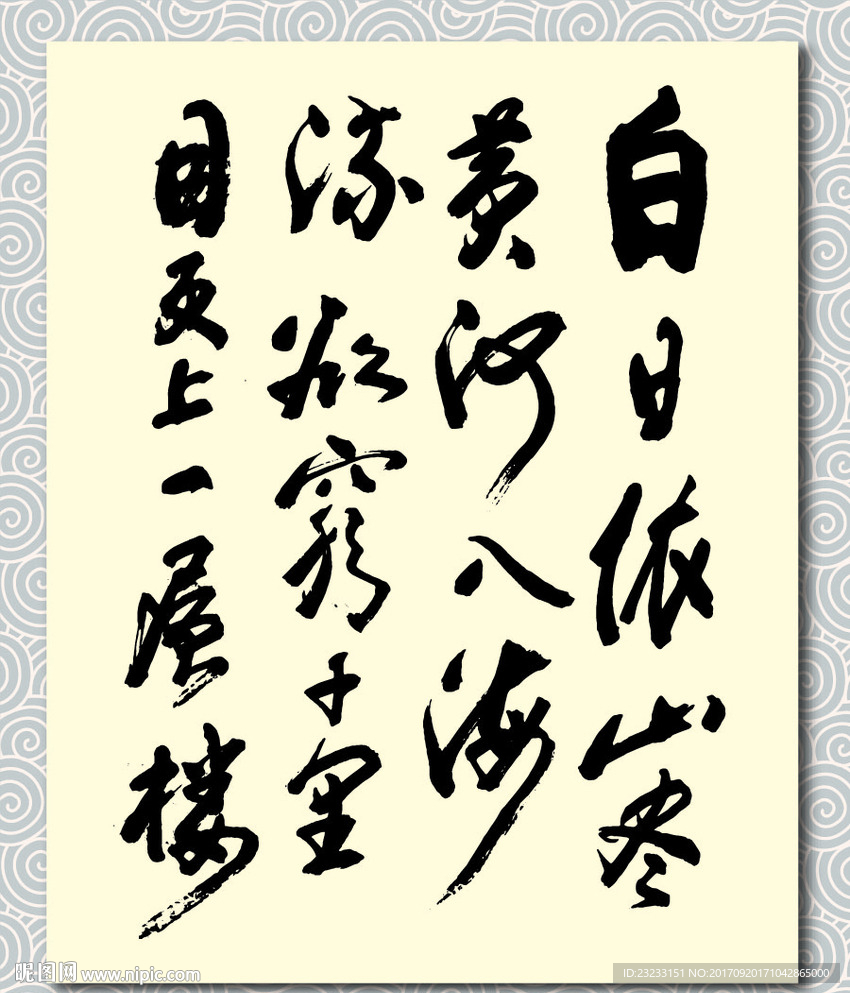 白日依山尽
黄河入海
流欲穷千里
目更上一层楼
昵图网 www.nipic.com
ID:23233151 NO:20170920171042865000